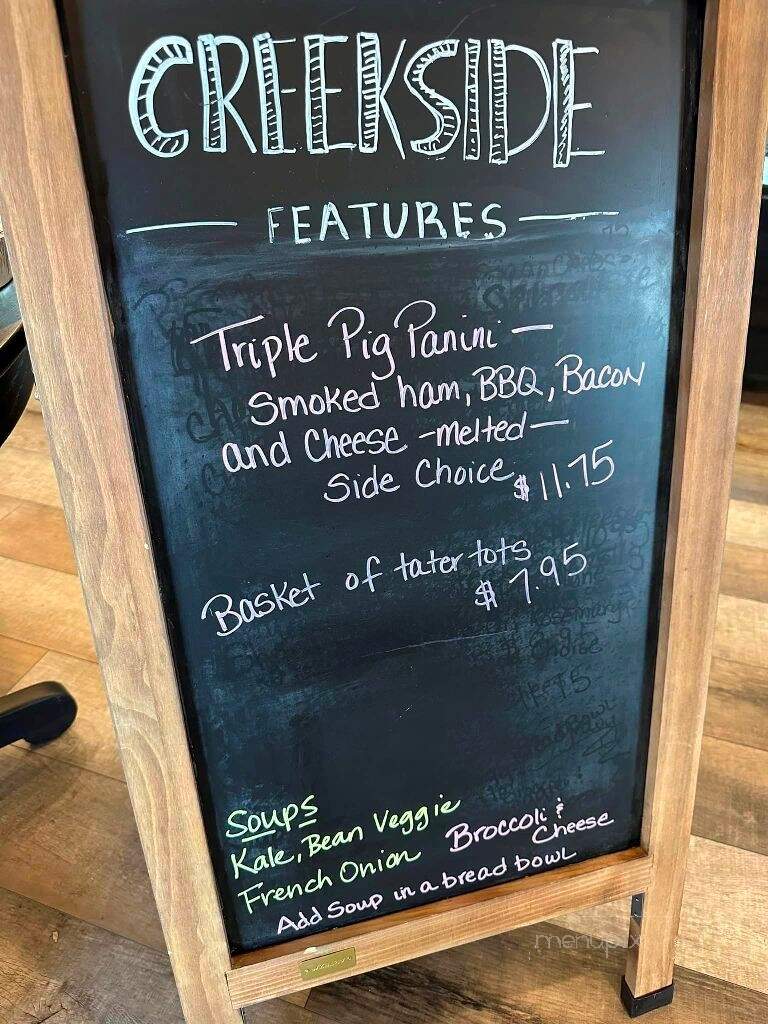 CREEKSIDE
FEATURES
Triple Pig Panini —
Smoked ham, BBQ, Bacon
and Cheese - melted —
Side Choice
$11.75
Basket of tater tots
$7.95
Soups
Kale, Bean Veggie
French Onion
Broccoli &
Cheese
Add Soup in a bread bowl
menupix